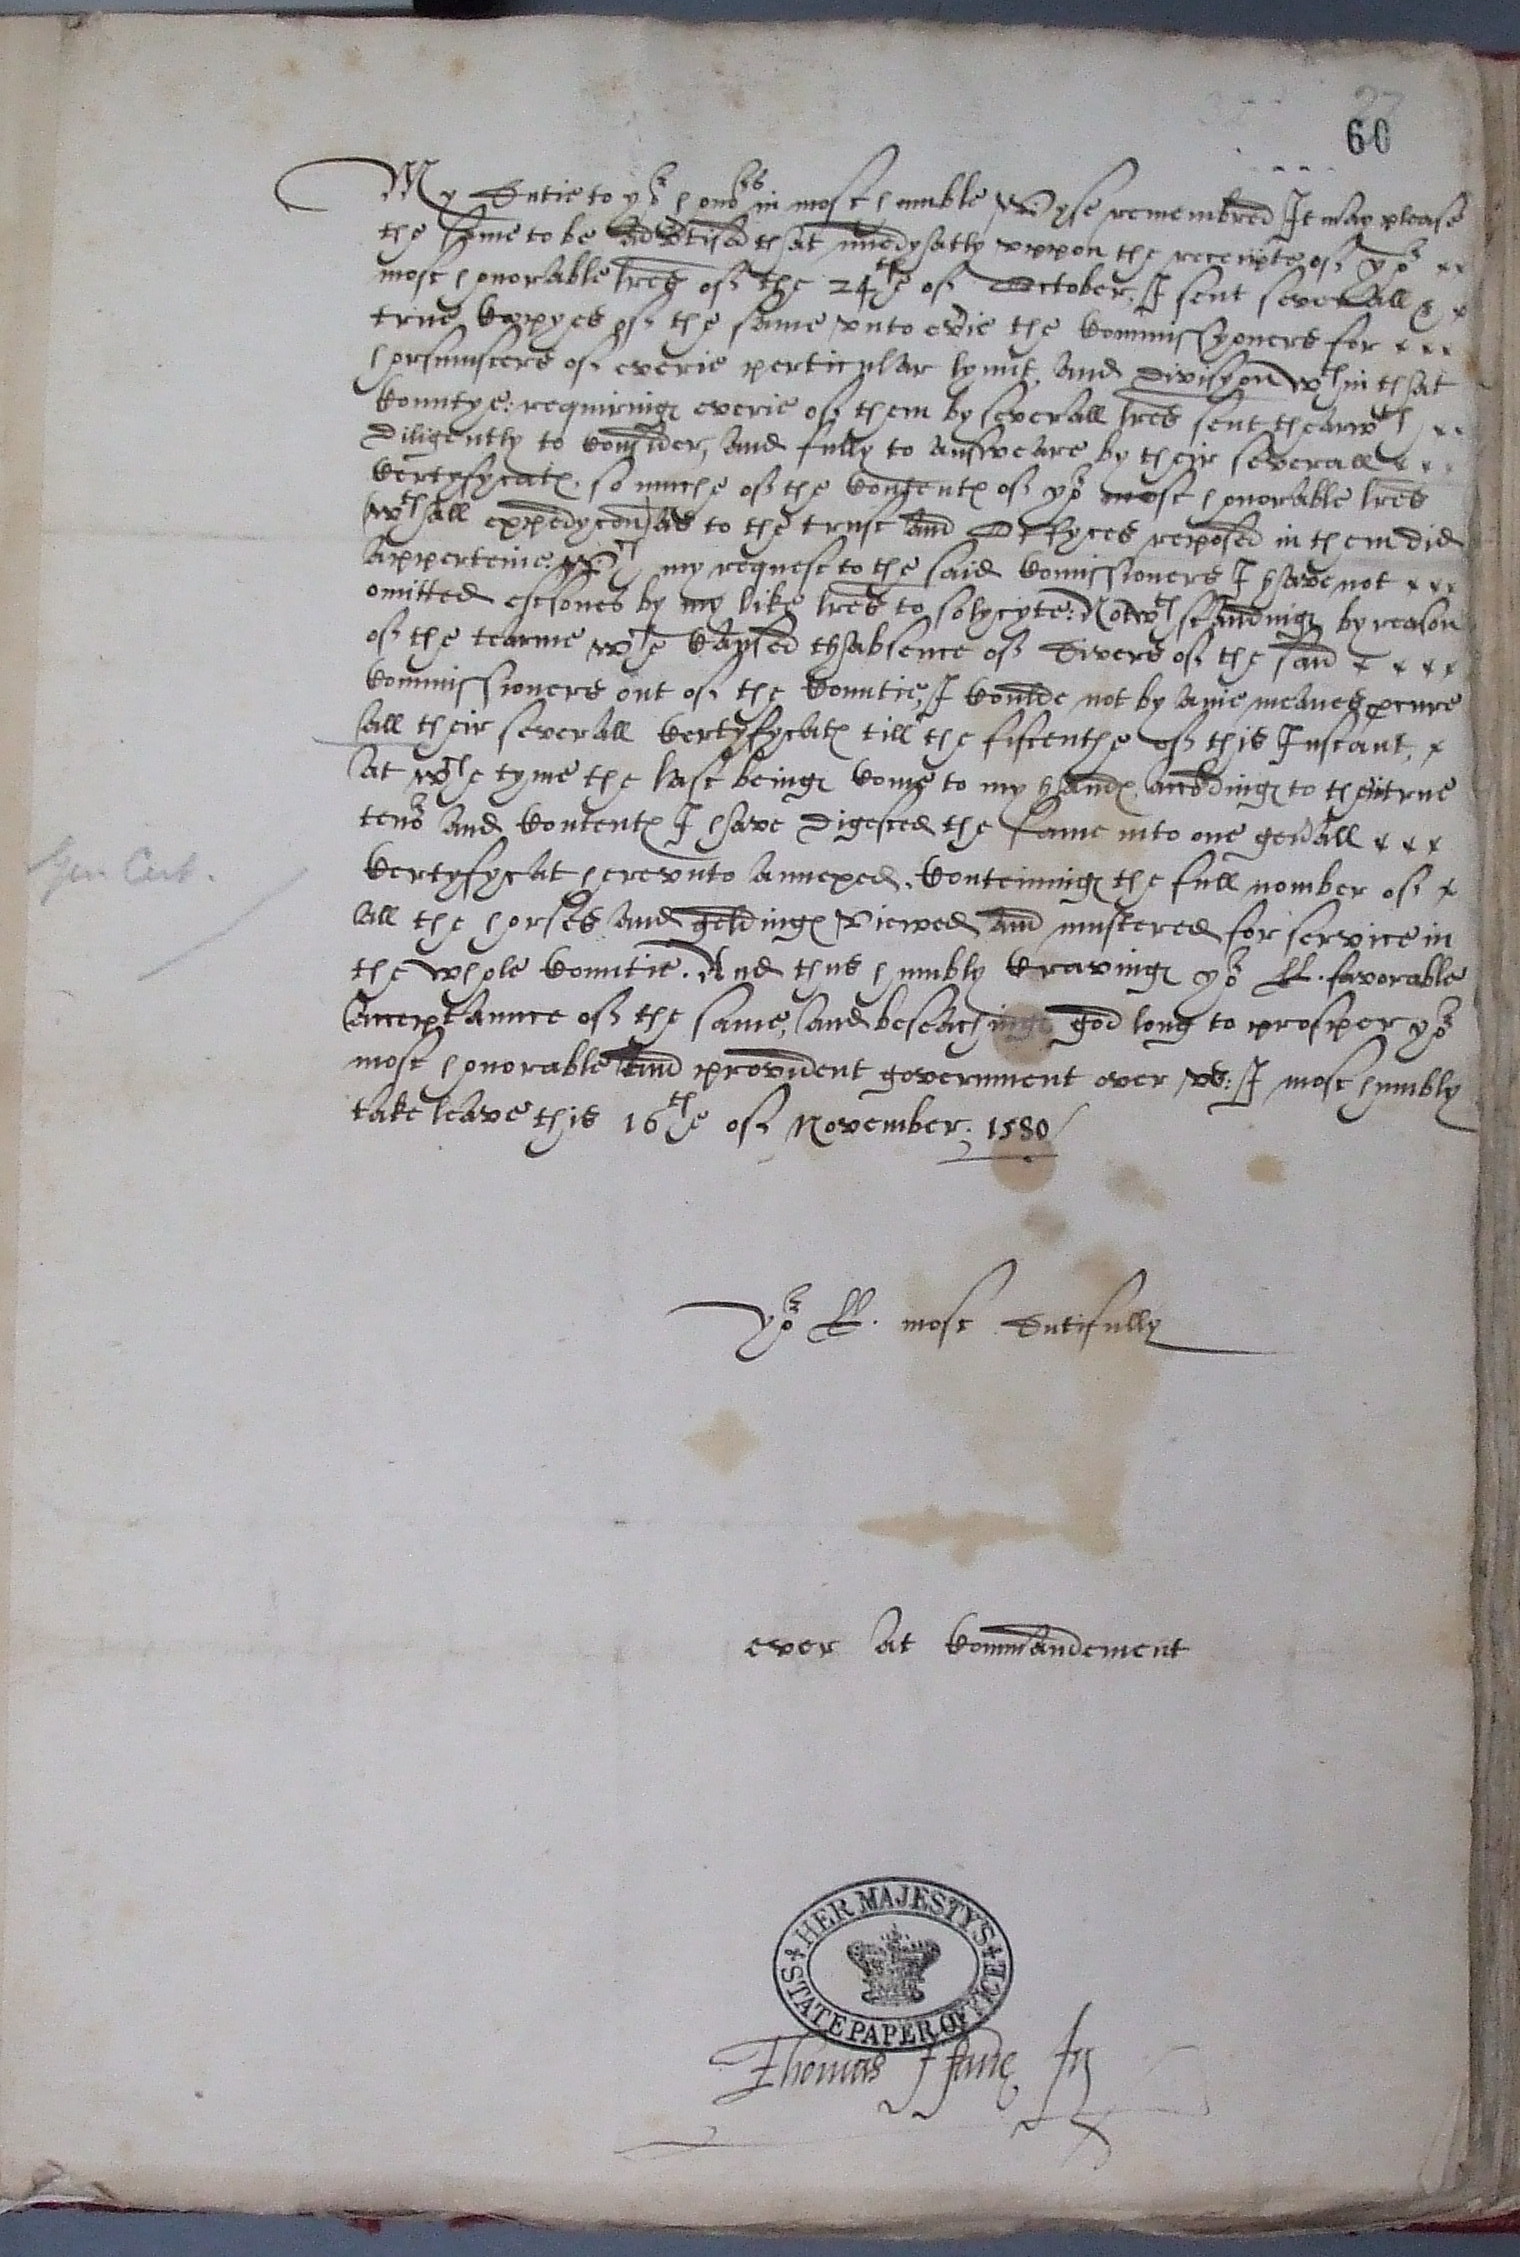 27
60
My Dutie to yor honors in most humble Wyse remembred It may please
the same to be advtised that imedyatly vppon the receipte of yor
most honorable lres of the 24the of October, I sent severall
true Coppyes of the same vnto evie the Commissyoners for
horsmusters of everie perticular lymit and Divisyon wthin that
Countye: requiringe everie of them by severall lres sent thearwth
Diligently to Consider, and fully to answeare by their severall
Certyfycates so muche of the Contentes of yor most honorable lres
wth all expedycon as to the trust and Offyces reposed in them did
apperteine. Wch my request to the said Comissioners I have not
omitted eftsones by my like lres to solycyte: Notwthstandinge by reason
of the tearme wche Caused thabsence of Divers of the said
Commissioners out of the Countie, I Coulde not by anie meanes pcure
all their severall Certyfycates till the fiftenthe of this Instant,
At wche tyme the last beinge Come to my handes accordinge to their true
tenor and Contentes I have Digested the same into one genall
Certyfycat herevnto annexed. Conteininge the full nomber of
all the horses and geldinges Viewed and mustered for service in
the whole Countie. And thus humbly Cravinge yor LL. favorable
acceptaunce of the same, and beseachinge god long to prosper yor
most honorable and provident government over vs: I most humbly
take leave this 16the of November. 1580
Gen Cert.
yor LL. most Dutifully
ever at Commandement
HER MAJESTY'S
STATE PAPER OFFICE
Thomas ffane